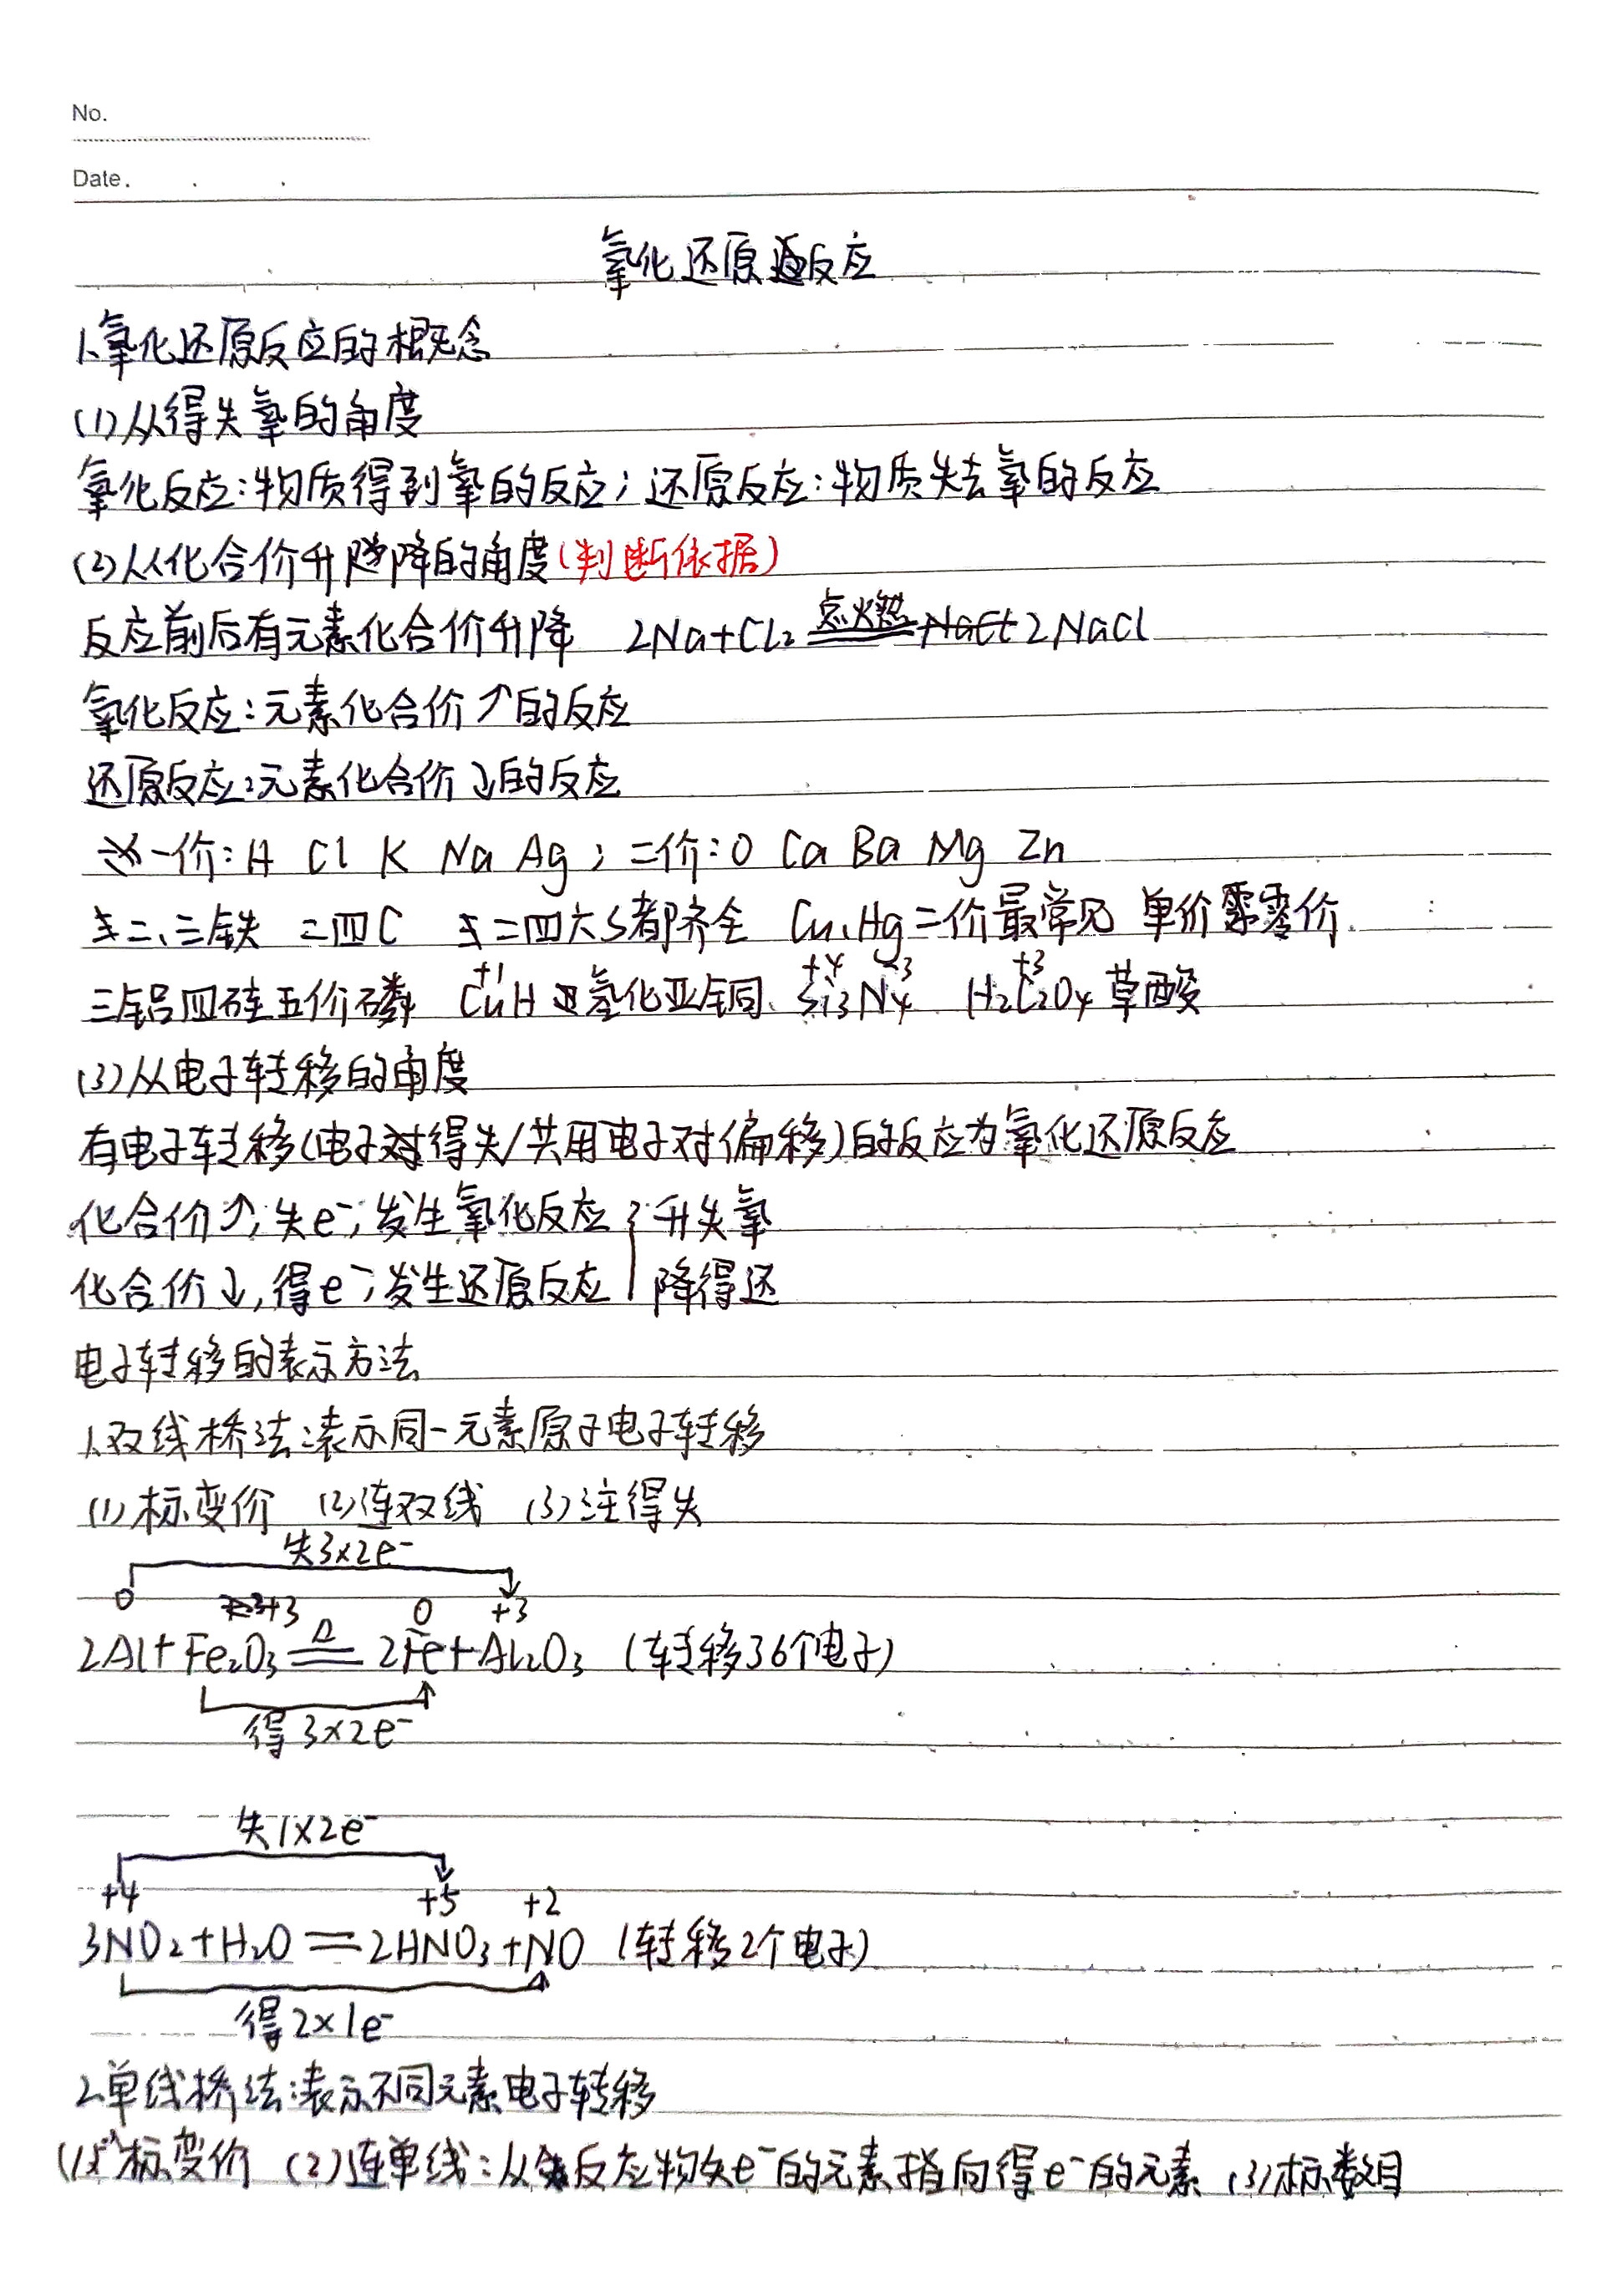 No.
Date.
氧化还原反应
1.氧化还原反应的概念
(1)从得失氧的角度
氧化反应:物质得到氧的反应;还原反应:物质失去氧的反应
(2)从化合价升降的角度(判断依据)
反应前后有元素化合价升降 2Na+Cl₂ 点燃══ 2NaCl
氧化反应:元素化合价↑的反应
还原反应:元素化合价↓的反应
一价:H Cl K Na Ag;二价:O Ca Ba Mg Zn
二、三铁 二四C 二四六S都齐全 Cu、Hg二价最常见 单价零价.
+1 +4 -3 +3
三铝四硅五价磷 CuH 氢化亚铜、Si₃N₄ H₂C₂O₄草酸
(3)从电子转移的角度
有电子转移(电子得失/共用电子对偏移)的反应为氧化还原反应
化合价↑,失e⁻,发生氧化反应 } 升失氧
化合价↓,得e⁻,发生还原反应 降得还
电子转移的表示方法
1.双线桥法:表示同一元素原子电子转移
(1)标变价 (2)连双线 (3)注得失
失3×2e⁻
0 +3 0 +3
2Al+Fe₂O₃ △══ 2Fe+Al₂O₃ (转移6个电子)
得3×2e⁻
失1×2e⁻
+4 +5 +2
3NO₂+H₂O══2HNO₃+NO (转移2个电子)
得2×1e⁻
2.单线桥法:表示不同元素电子转移
(1)标变价 (2)连单线:从反应物失e⁻的元素指向得e⁻的元素 (3)标数目